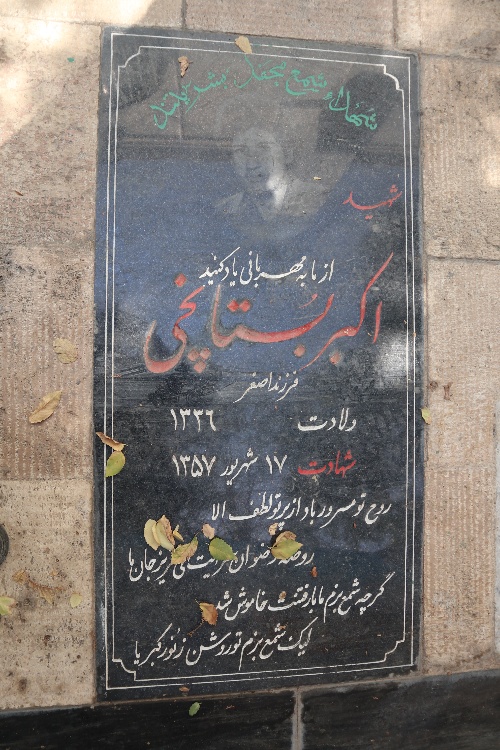 شهدا شمع محفل بشریتند
شهید
از ما به مهربانی یاد کنید
اکبر بستانچی
فرزند اصغر
ولادت ۱۳۳۶
شهادت ۱۷ شهریور ۱۳۵۷
روح تو مسرور باد از پرتو لطف الا
روضه رضوان
گرچه شمع بزم ما با رفتنت خاموش شد
لیک شمع بزم تو روشن ز نور کبریا